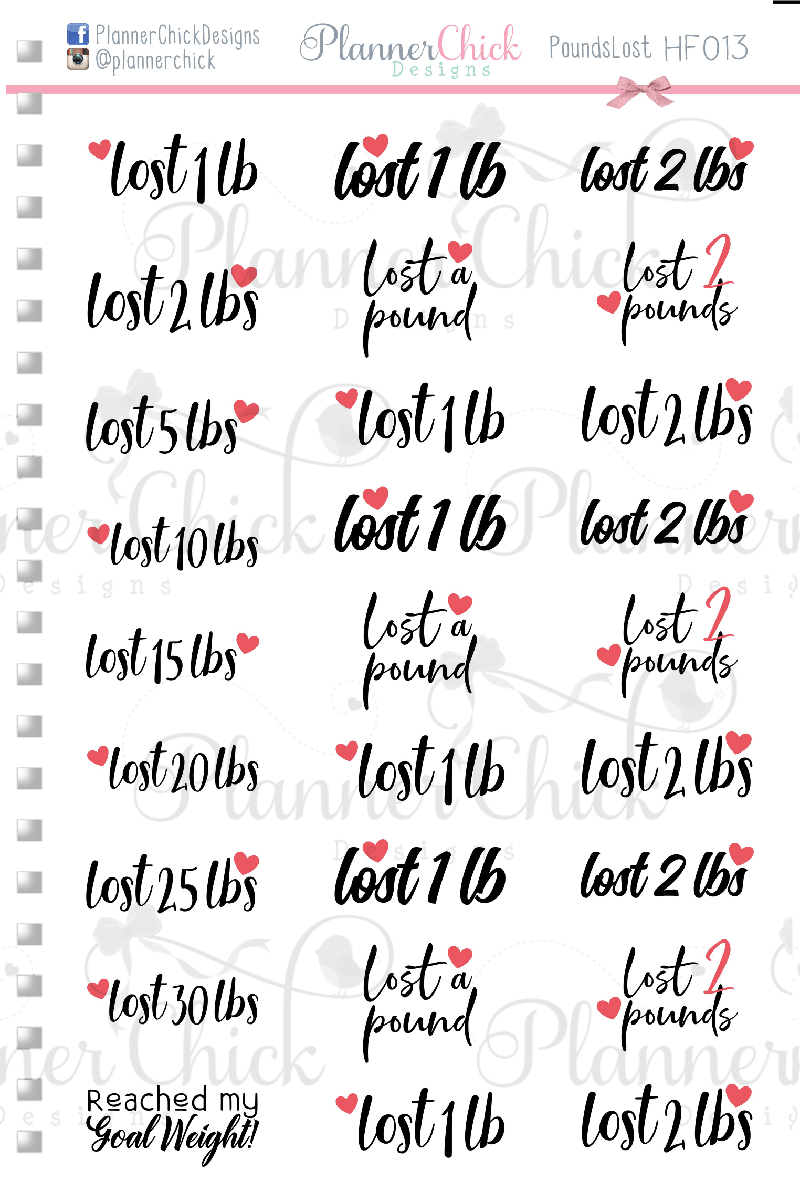 PlannerChickDesigns
@plannerchick
PlannerChick
Designs
PoundsLost HF013
lost 1 lb
lost 1 lb
lost 2 lbs
lost 2 lbs
lost a
pound
lost 2
pounds
lost 5 lbs
lost 1 lb
lost 2 lbs
lost 10 lbs
lost 1 lb
lost 2 lbs
lost 15 lbs
lost a
pound
lost 2
pounds
lost 20 lbs
lost 1 lb
lost 2 lbs
lost 25 lbs
lost 1 lb
lost 2 lbs
lost 30 lbs
lost a
pound
lost 2
pounds
Reached my
Goal Weight!
lost 1 lb
lost 2 lbs
Planner Chick
Designs
Planner Chick
Designs
Planner Chick
Designs
Planner Chick
Designs